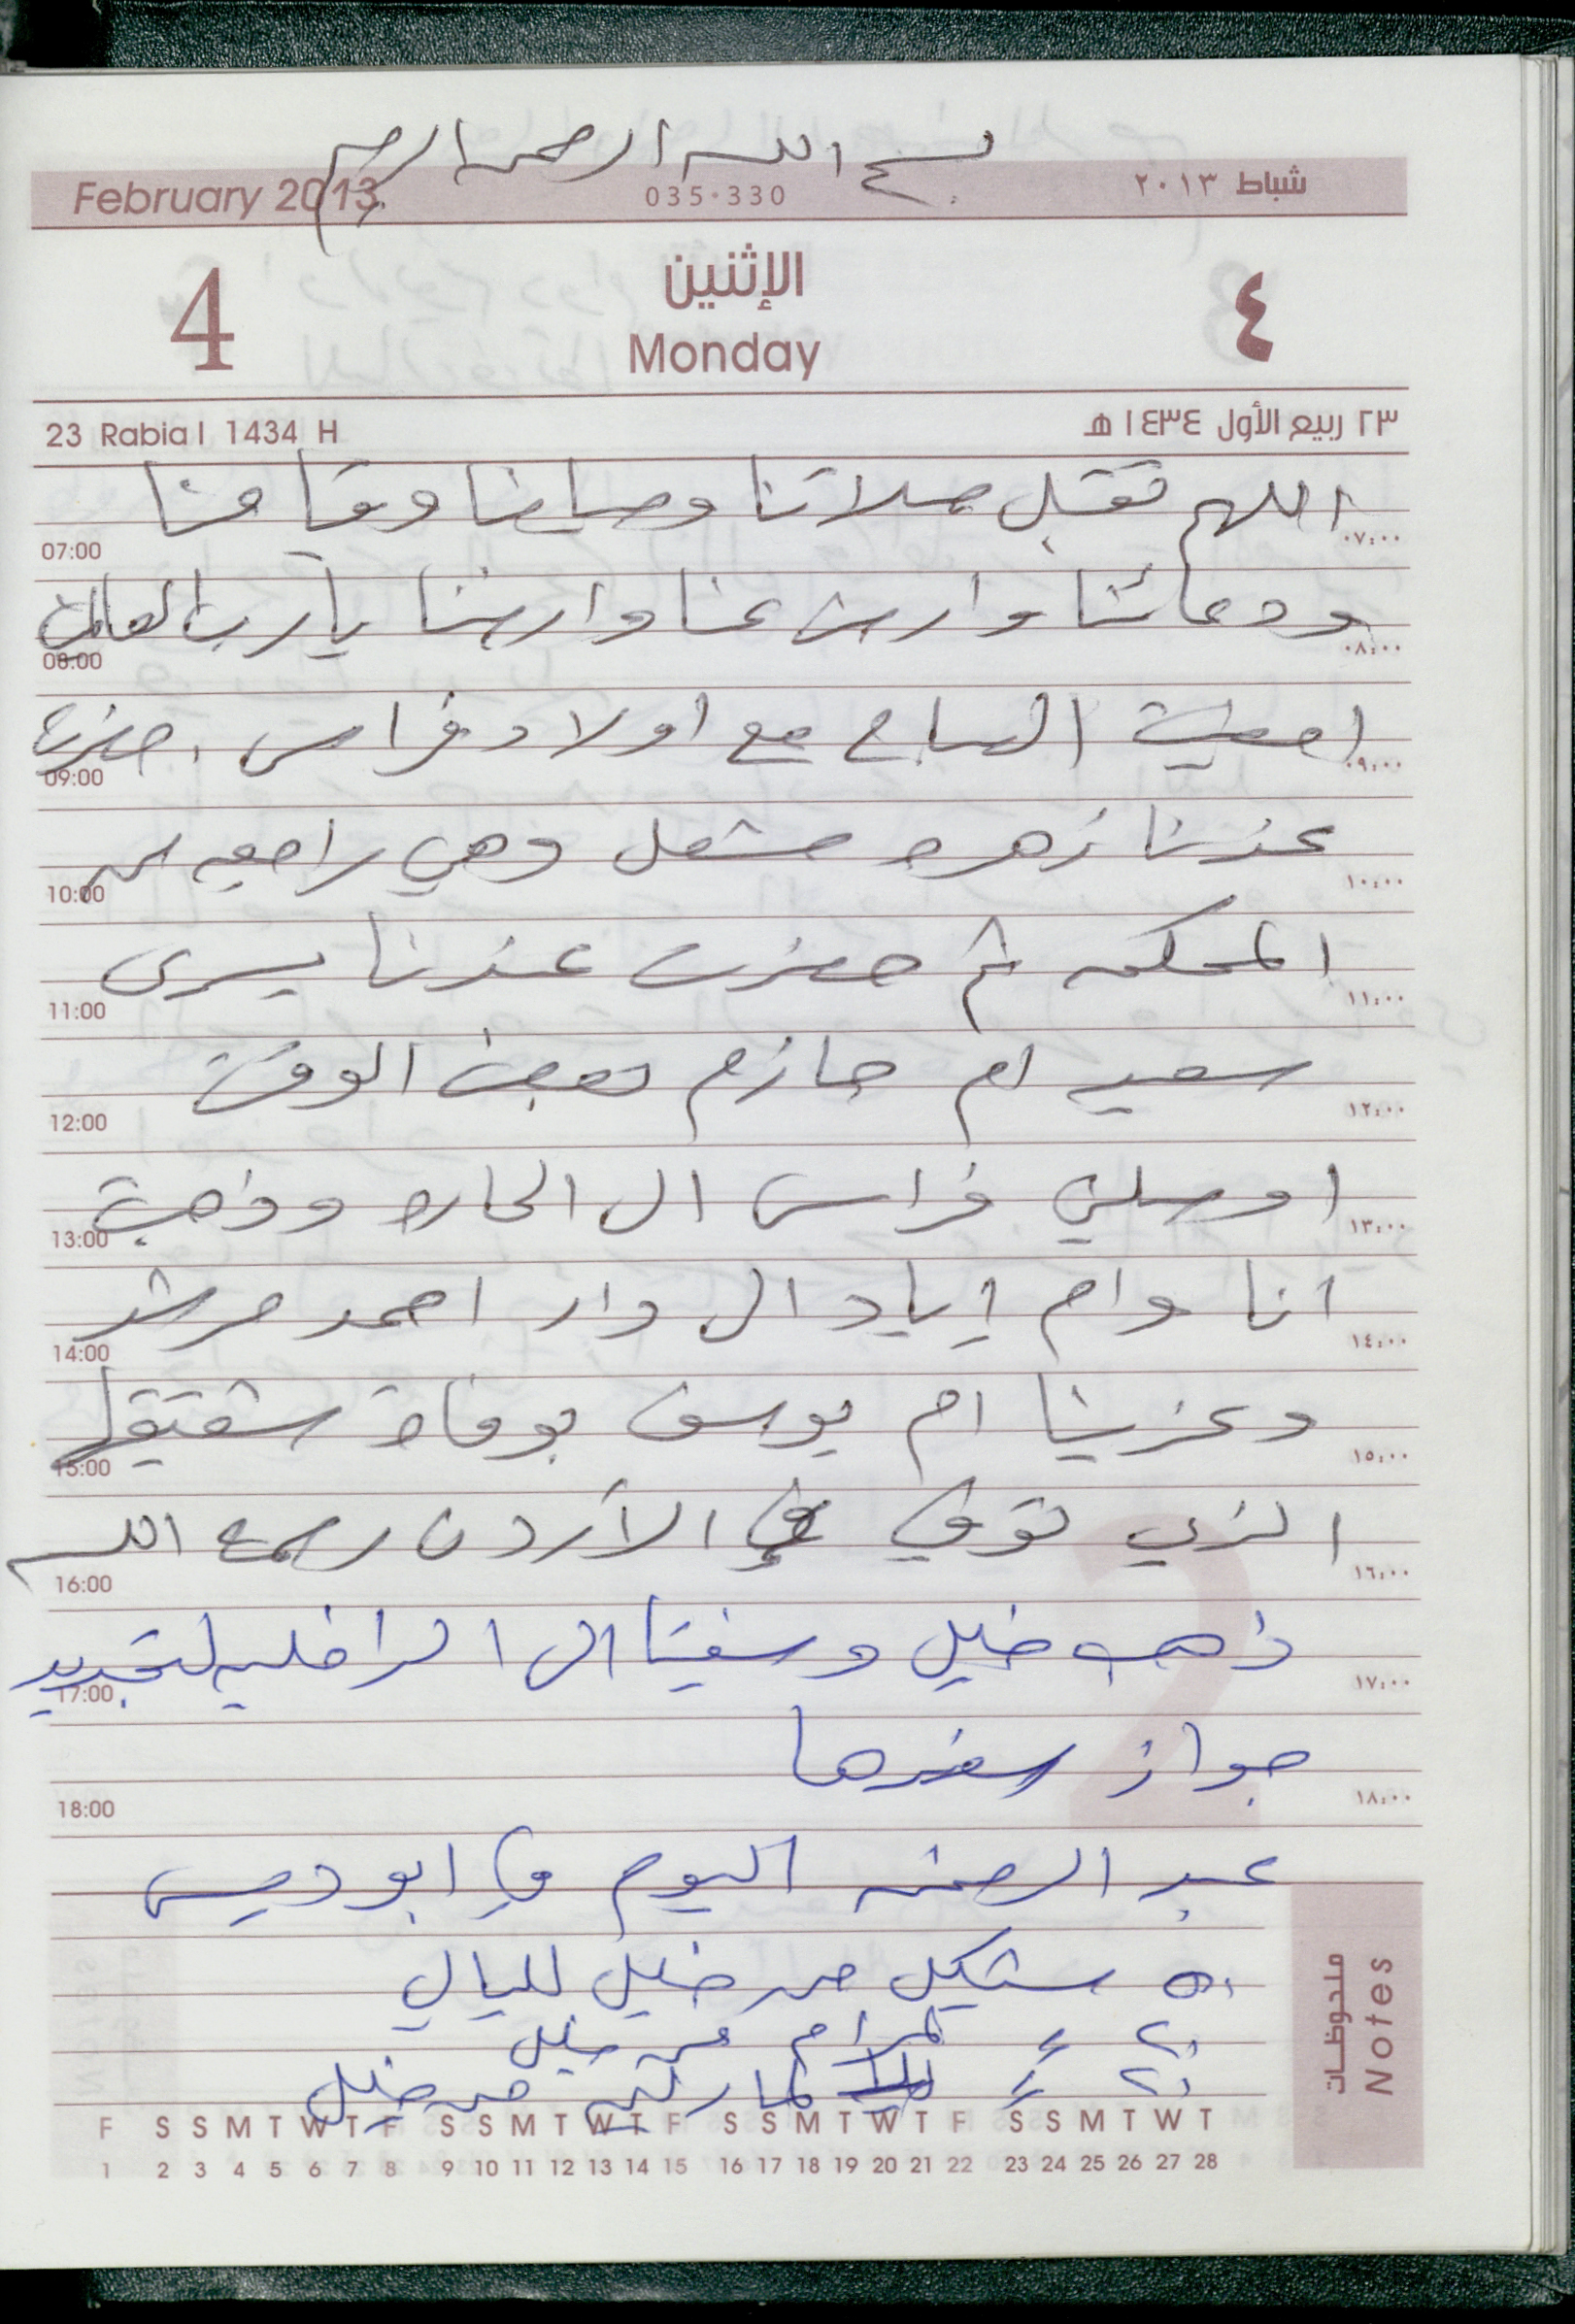 بسم الله الرحمن الرحيم
February 2013 035-330 شباط ٢٠١٣
4 الإثنين ٤
Monday
23 Rabia I 1434 H ٢٣ ربيع الأول ١٤٣٤ هـ
اللهم تقبل صلاتنا وصيامنا وقيامنا
07:00 ٠٧:٠٠
ودعائنا وارض عنا وارضنا يا رب العالمين
08:00 ٠٨:٠٠
امضيت الصباح مع اولاد فراس . حضرت
09:00 ٠٩:٠٠
عندنا زهره مشعل وهي راجعه من
10:00 ١٠:٠٠
المحكمه ثم حضرت عندنا يسرى
11:00 ١١:٠٠
سعيد ام حازم بعض الوقت
12:00 ١٢:٠٠
اوصلني فراس الى الحاره وذهبت
13:00 ١٣:٠٠
انا وام اياد الى دار احمد مرشد
14:00 ١٤:٠٠
وعزينا ام يوسف بوفاة شقيقها
15:00 ١٥:٠٠
الذي توفي في الأردن رحمه الله
16:00 ١٦:٠٠
ذهب خليل وسفيتا الى الداخليه لتجديد
17:00 ١٧:٠٠
جواز سفرها
18:00 ١٨:٠٠
عبد الرحمن اليوم في ابو ديس
٥٠ شيكل من خليل لليالي
٢٠ // لمرام من خليل
٢٠ // لمارلين من خليل
ملحوظات Notes
F S S M T W T F S S M T W T F S S M T W T F S S M T W T
1 2 3 4 5 6 7 8 9 10 11 12 13 14 15 16 17 18 19 20 21 22 23 24 25 26 27 28